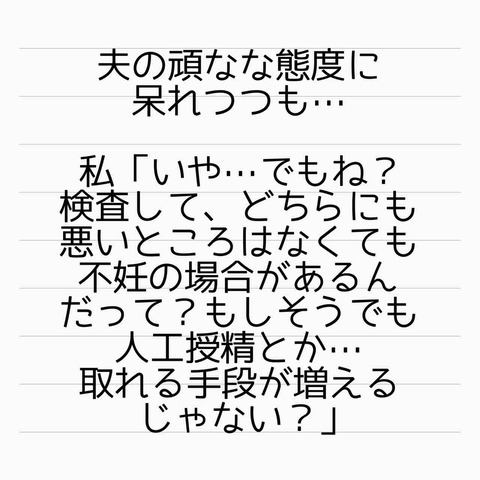 夫の頑なな態度に
呆れつつも…
私「いや…でもね？
検査して、どちらにも
悪いところはなくても
不妊の場合があるん
だって？もしそうでも
人工授精とか…
取れる手段が増える
じゃない？」